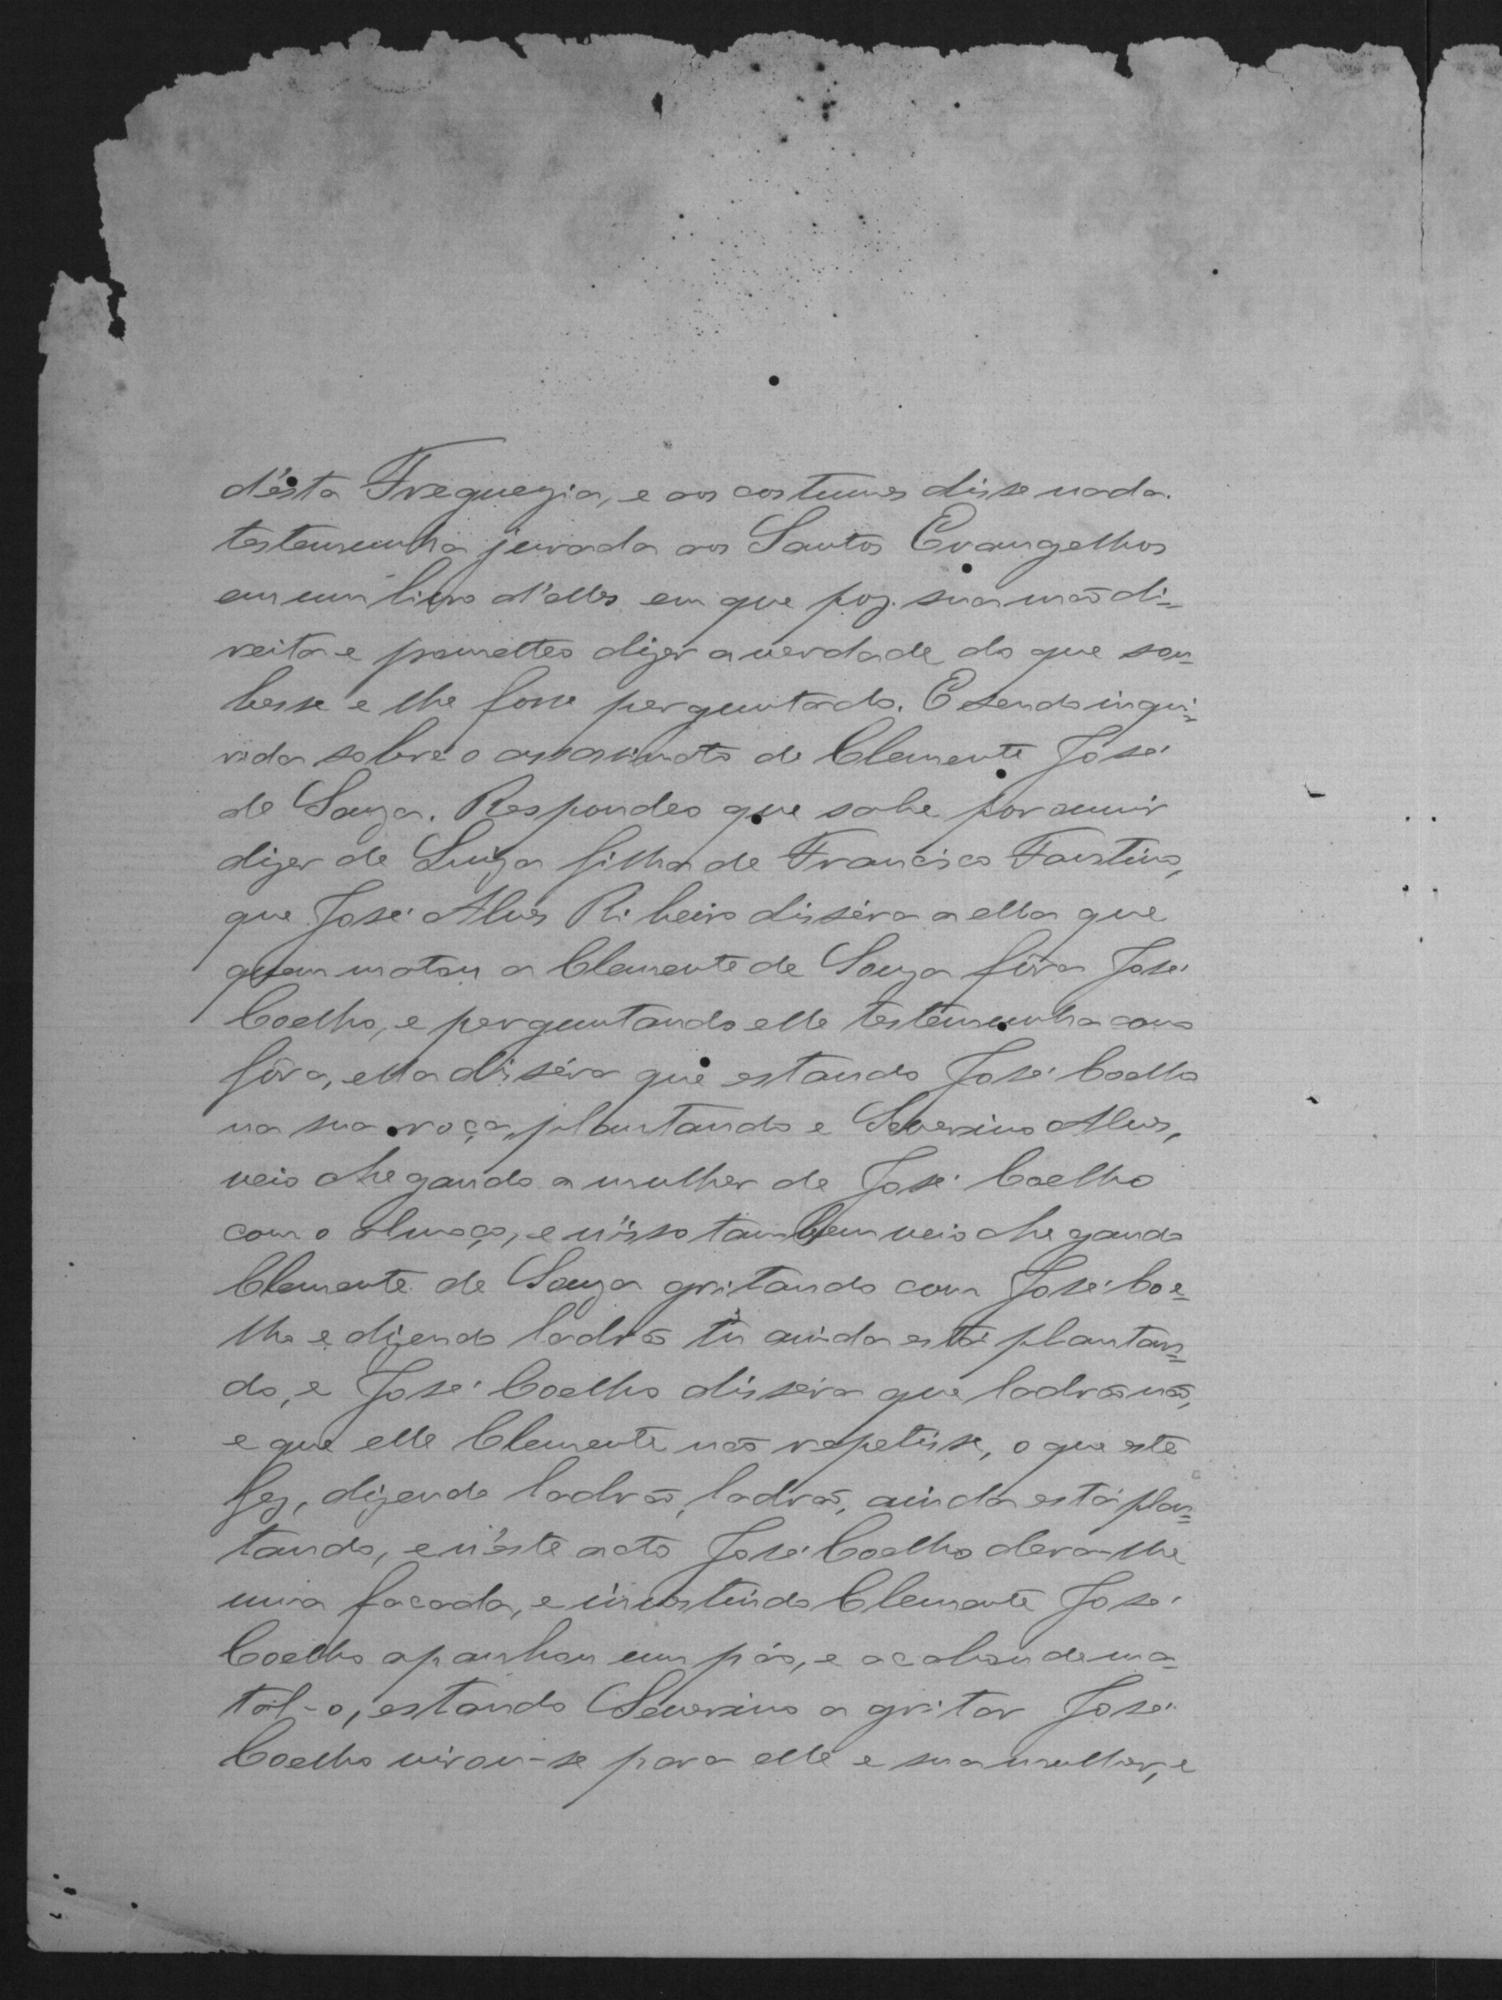 d'ésta Freguezia, e aos costumes disse nada.
testemunha jurada aos Santos Evangelhos
em um livro d'elles em que poz sua mão di=
reita e prometteo dizer a verdade do que sou=
besse e lhe fosse perguntado. E sendo inqui=
rida sobre o assassinato de Clemente José
de Souza. Respondeo que sabe por ouvir
dizer de Luiza filha de Francisco Faustino,
que José Alves Ribeiro disséra a ella que
quem matou a Clemente de Souza fôra José
Coelho, e perguntando elle testemunha como
fôra, ella disséra que estando José Coelho
na sua roça, plantando e Severino Alves,
veio chegando a mulher de José Coelho
com o almoço, e n'isso tambem veio chegando
Clemente de Souza gritando com José Coe=
lho e dizendo ladrão tu ainda está plantan=
do, e José Coelho disséra que ladrão não,
e que elle Clemente não repetisse, o que este
fez, dizendo ladrão, ladrão, ainda está plan=
tando, e n'éste acto José Coelho dera-lhe
uma facada, e investindo Clemente José
Coelho apanhou um páo, e acabou de ma=
tál-o, estando Severino a gritar José
Coelho virou-se para elle e sua mulher, e